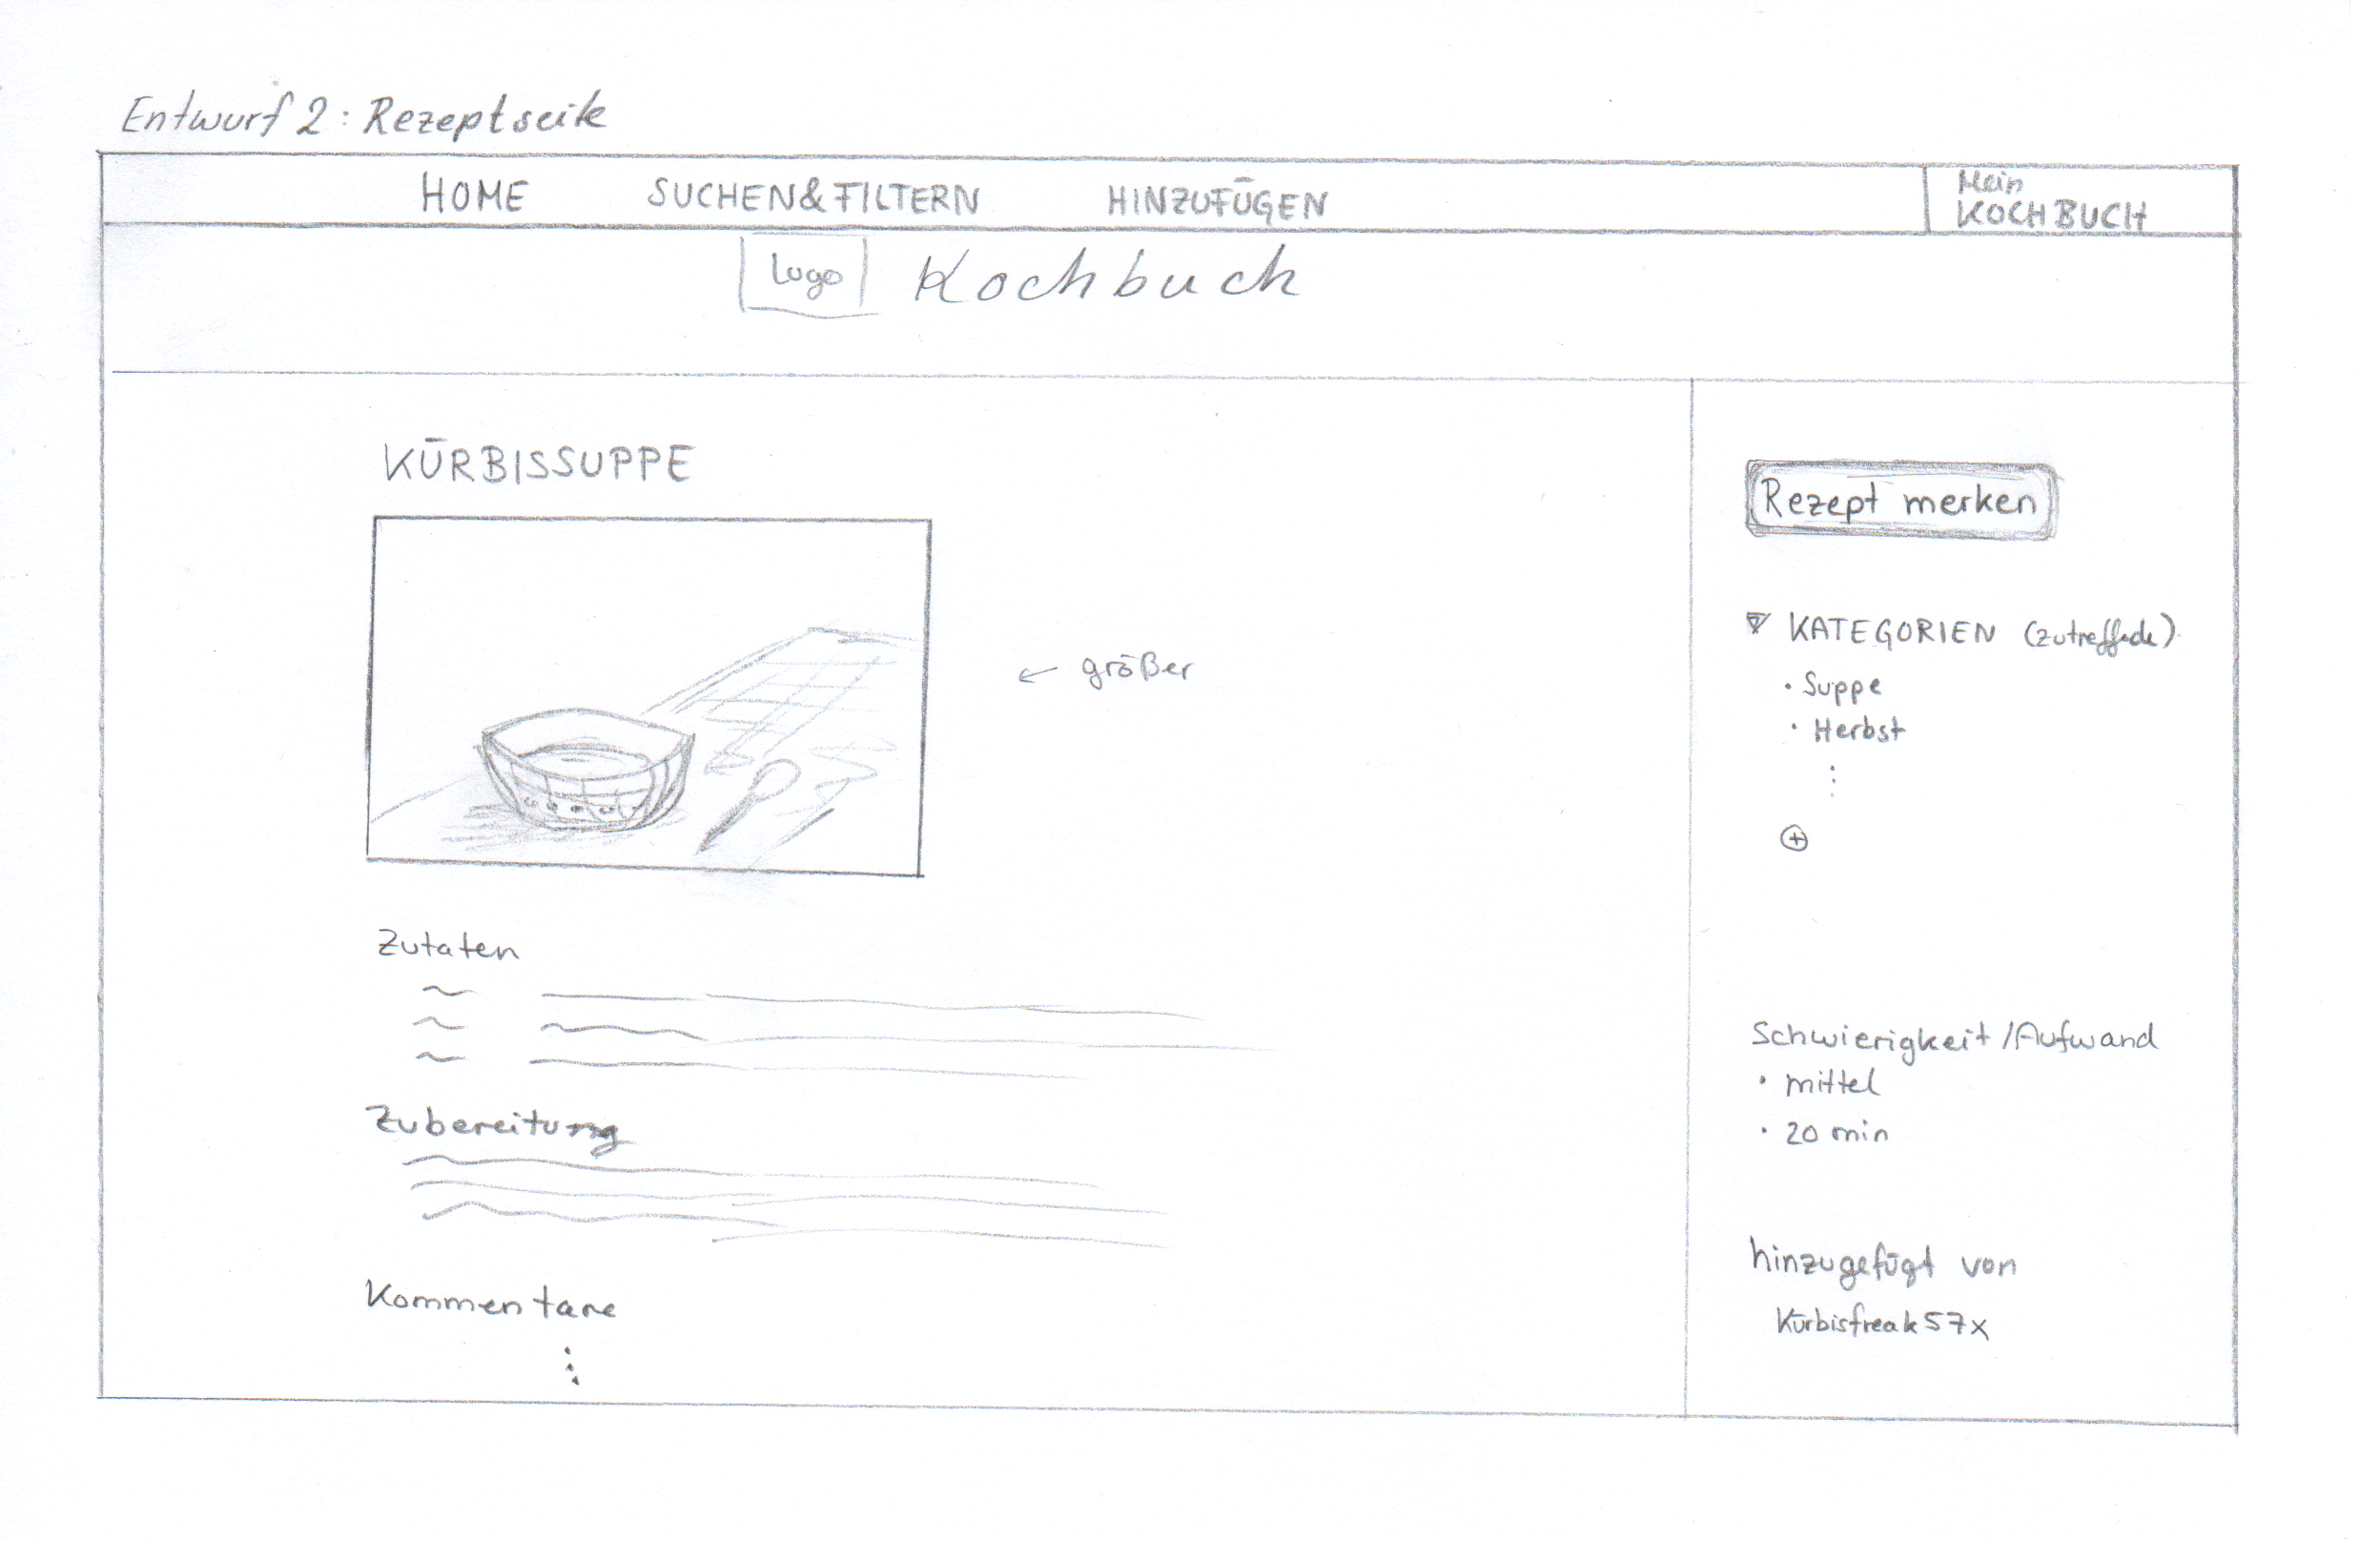 Entwurf 2: Rezeptseite
HOME SUCHEN&FILTERN HINZUFÜGEN
Mein
KOCHBUCH
Logo Kochbuch
KÜRBISSUPPE
← größer
Zutaten
Zubereitung
Kommentare
Rezept merken
▽ KATEGORIEN (zutreffende)
· Suppe
· Herbst
⊕
Schwierigkeit/Aufwand
· mittel
· 20 min
hinzugefügt von
Kürbisfreak57x